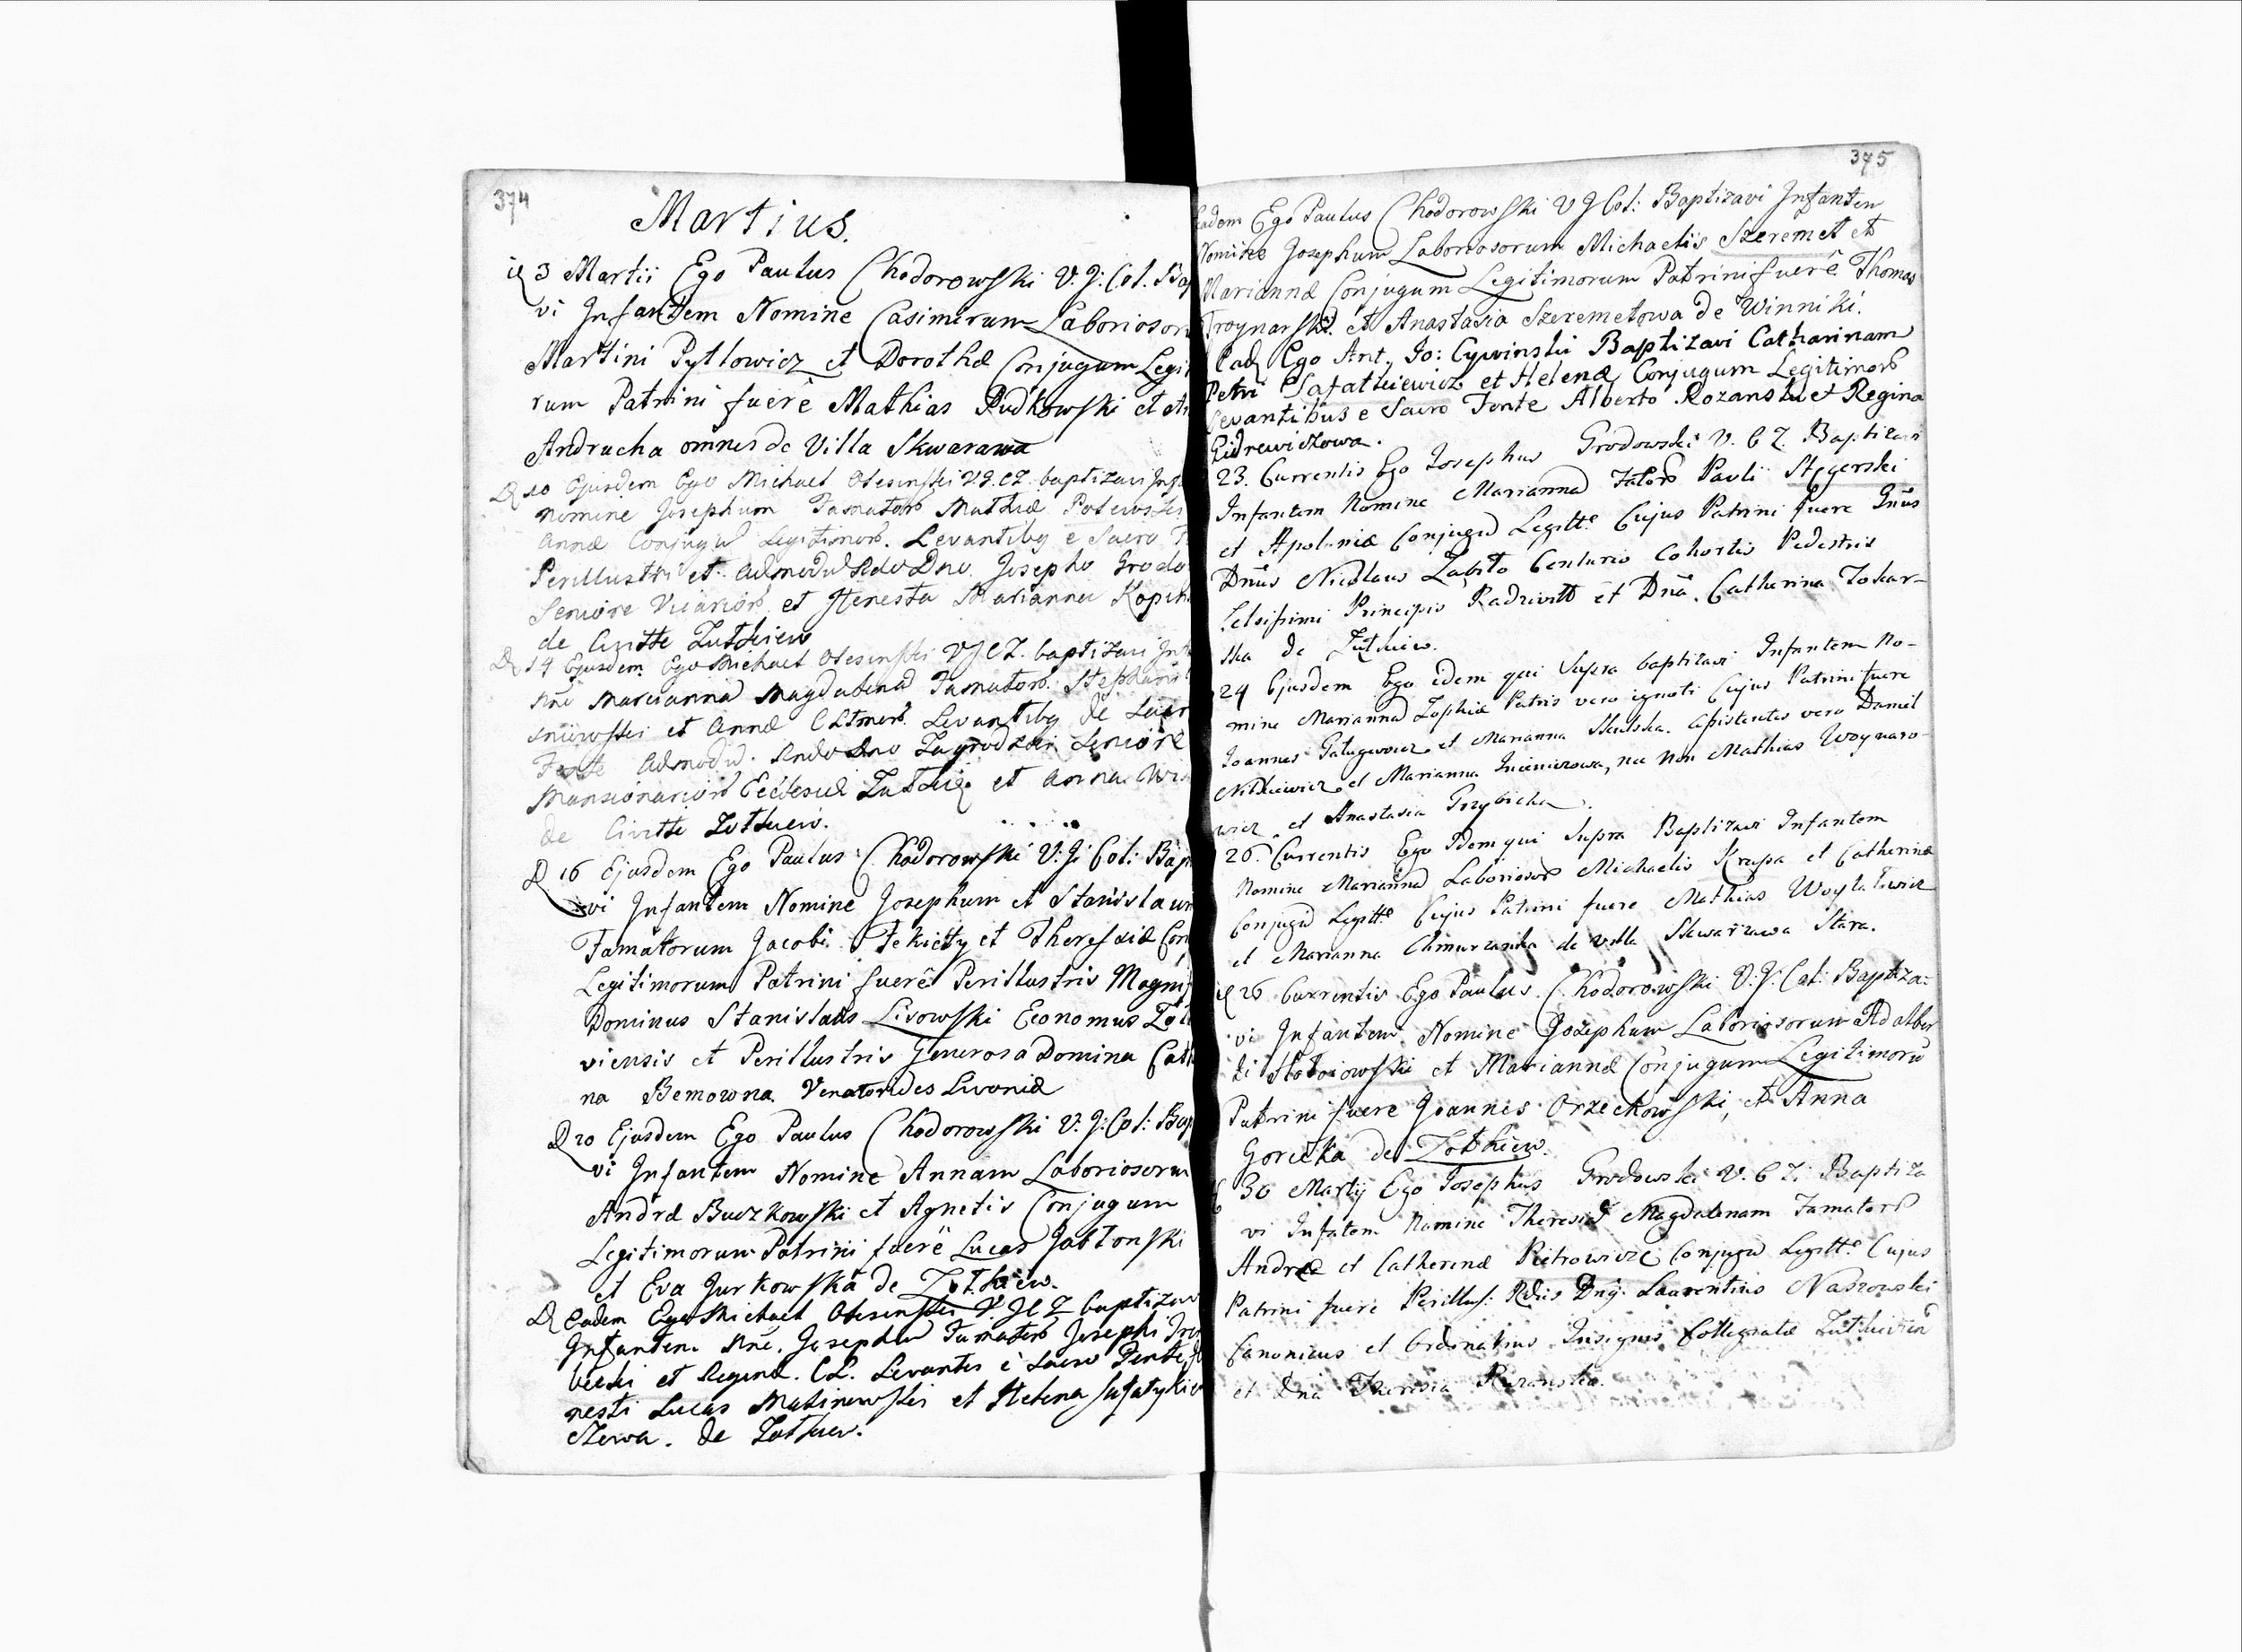 374
Martius.
3 Martii Ego Paulus Chodorowski V. J: Col. Bap
vi Infantem Nomine Casimirum Laborioson
Martini Pytlowicz et Dorothæ Conjugum Legi
rum Patrini fuerê Mathias Rudkowski et
Andrucha omnes de Villa Skwarawa
D 10 Ejusdem Ego Michael Olesinski V.J.CZ. baptizavi Inf
nomine Josephum Famator Mathiæ
Annæ Conjugu Legitimor. Levantibq e Sacro
Perillustri et Admodu Rdo Dno Josepho Grodo
Seniore Vicarior et Honesta Marianna
de Civitte Zutkiew
D 14 Ejusdem Ego Michael Olesinski VJCZ. baptizavi Inf
Nne Mariannā Magdalenā Famator. Stephani
et Annæ Levantibq de Sacr
Fonte Admodu. Rndo Dno Zagrodzki Seniore
Mansionarior Ecclesiæ et Anna
de Civitte Zutkiew.
D 16 Ejusdem Ego Paulus Chodorowski V: J: Col: Bap
vi Infantem Nomine Josephum et Stanislaum
Famatorum Jacobi et Theresiæ Con
Legitimorum Patrini fuerê Perillustris Magnif
Dominus Stanislaus Lisowski Economus Zol
viensis et Perillustris Generosa Domina Cath
na Bemowna Venatorides Livoniæ
D 20 Ejusdem Ego Paulus Chodorowski V: J: Col: Bap
vi Infantem Nomine Annam Laboriosorum
Andræ Buczkowski et Agnetis Conjugum
Legitimorum Patrini fuerê Lucas Jabtonski
et Eva Jurkowska de Zotkiew.
D Eadem Ego Michael Olesinski V JCZ baptizav
Infantem Nne. Josephu Famator Josephi
et Reginæ. CL. Levantes è Sacro Fonte
nesti Lucas Malinowski et Helena Safatykie
czewa. de Zotkiew.
375
Eadem Ego Paulus Chodorowski V J Col: Baptizavi Infantem
Nomine Josephum Laboriosorum Michaelis Szeremet et
Mariannæ Conjugum Legitimorum Patrini fuerê Thomas
Troynarski. et Anastasia Szeremetowa de Winniki.
Ead Ego Ant. Jo: Cywinski Baptizavi Catharinam
Petri Safatkiewicz et Helenæ Conjugum Legitimor
Levantibus e Sacro Fonte Alberto Rozanski et Regina
Gidrewiczowa.
23. Currentis Ego Josephus Grodowski V. C Z. Baptizavi
Infantem Nomine Mariannā Pauli Stygerski
et Apoloniæ Conjugū Legitte Cujus Patrini fuere Gnūs
Dnūs Nicolaus Zabito Centurio Cohortis Pedestris
Celsissimi Principis Radziwill et Dnā. Catherina Tokar-
ska de Zutkiew.
24 Ejusdem Ego idem qui Supra baptizavi Infantem No-
mine Mariannā Zophiæ Patris vero ignoti Cujus Patrini fuere
Joannes et Marianna Assistentes vero Daniel
et Marianna nec non Mathias Woynaro-
wicz et Anastasia Przybicka.
26. Currentis Ego Idem qui Supra Baptizavi Infantem
Nomine Mariannā Laborioso Michaelis Krupa et Catherinæ
Conjugū Legitte Cujus Patrini fuere Mathias Woytatowicz
et Marianna de Villa Skwarzawa Stara.
26 Currentis Ego Paulus Chodorowski V: J: Col: Baptiza-
vi Infantem Nomine Josephum Laboriosorum Adalber
ti et Mariannæ Conjugum Legitimorū
Patrini fuere Joannes Orzechowski, et Anna
Gorecka de Zotkiew.
30 Martij Ego Josephus Grodowski V. C Z: Baptiza
vi Infatem Nomine Theresiā Magdalenam Famator
Andræ et Catherinæ Pietrowicz Conjugū Legitte Cujus
Patrini fuere Perillus: Rdūs Dnq. Laurentius Nadrowski
Canonicus et Ordinatius Insignis Collegiatæ
et Dnā Theresia